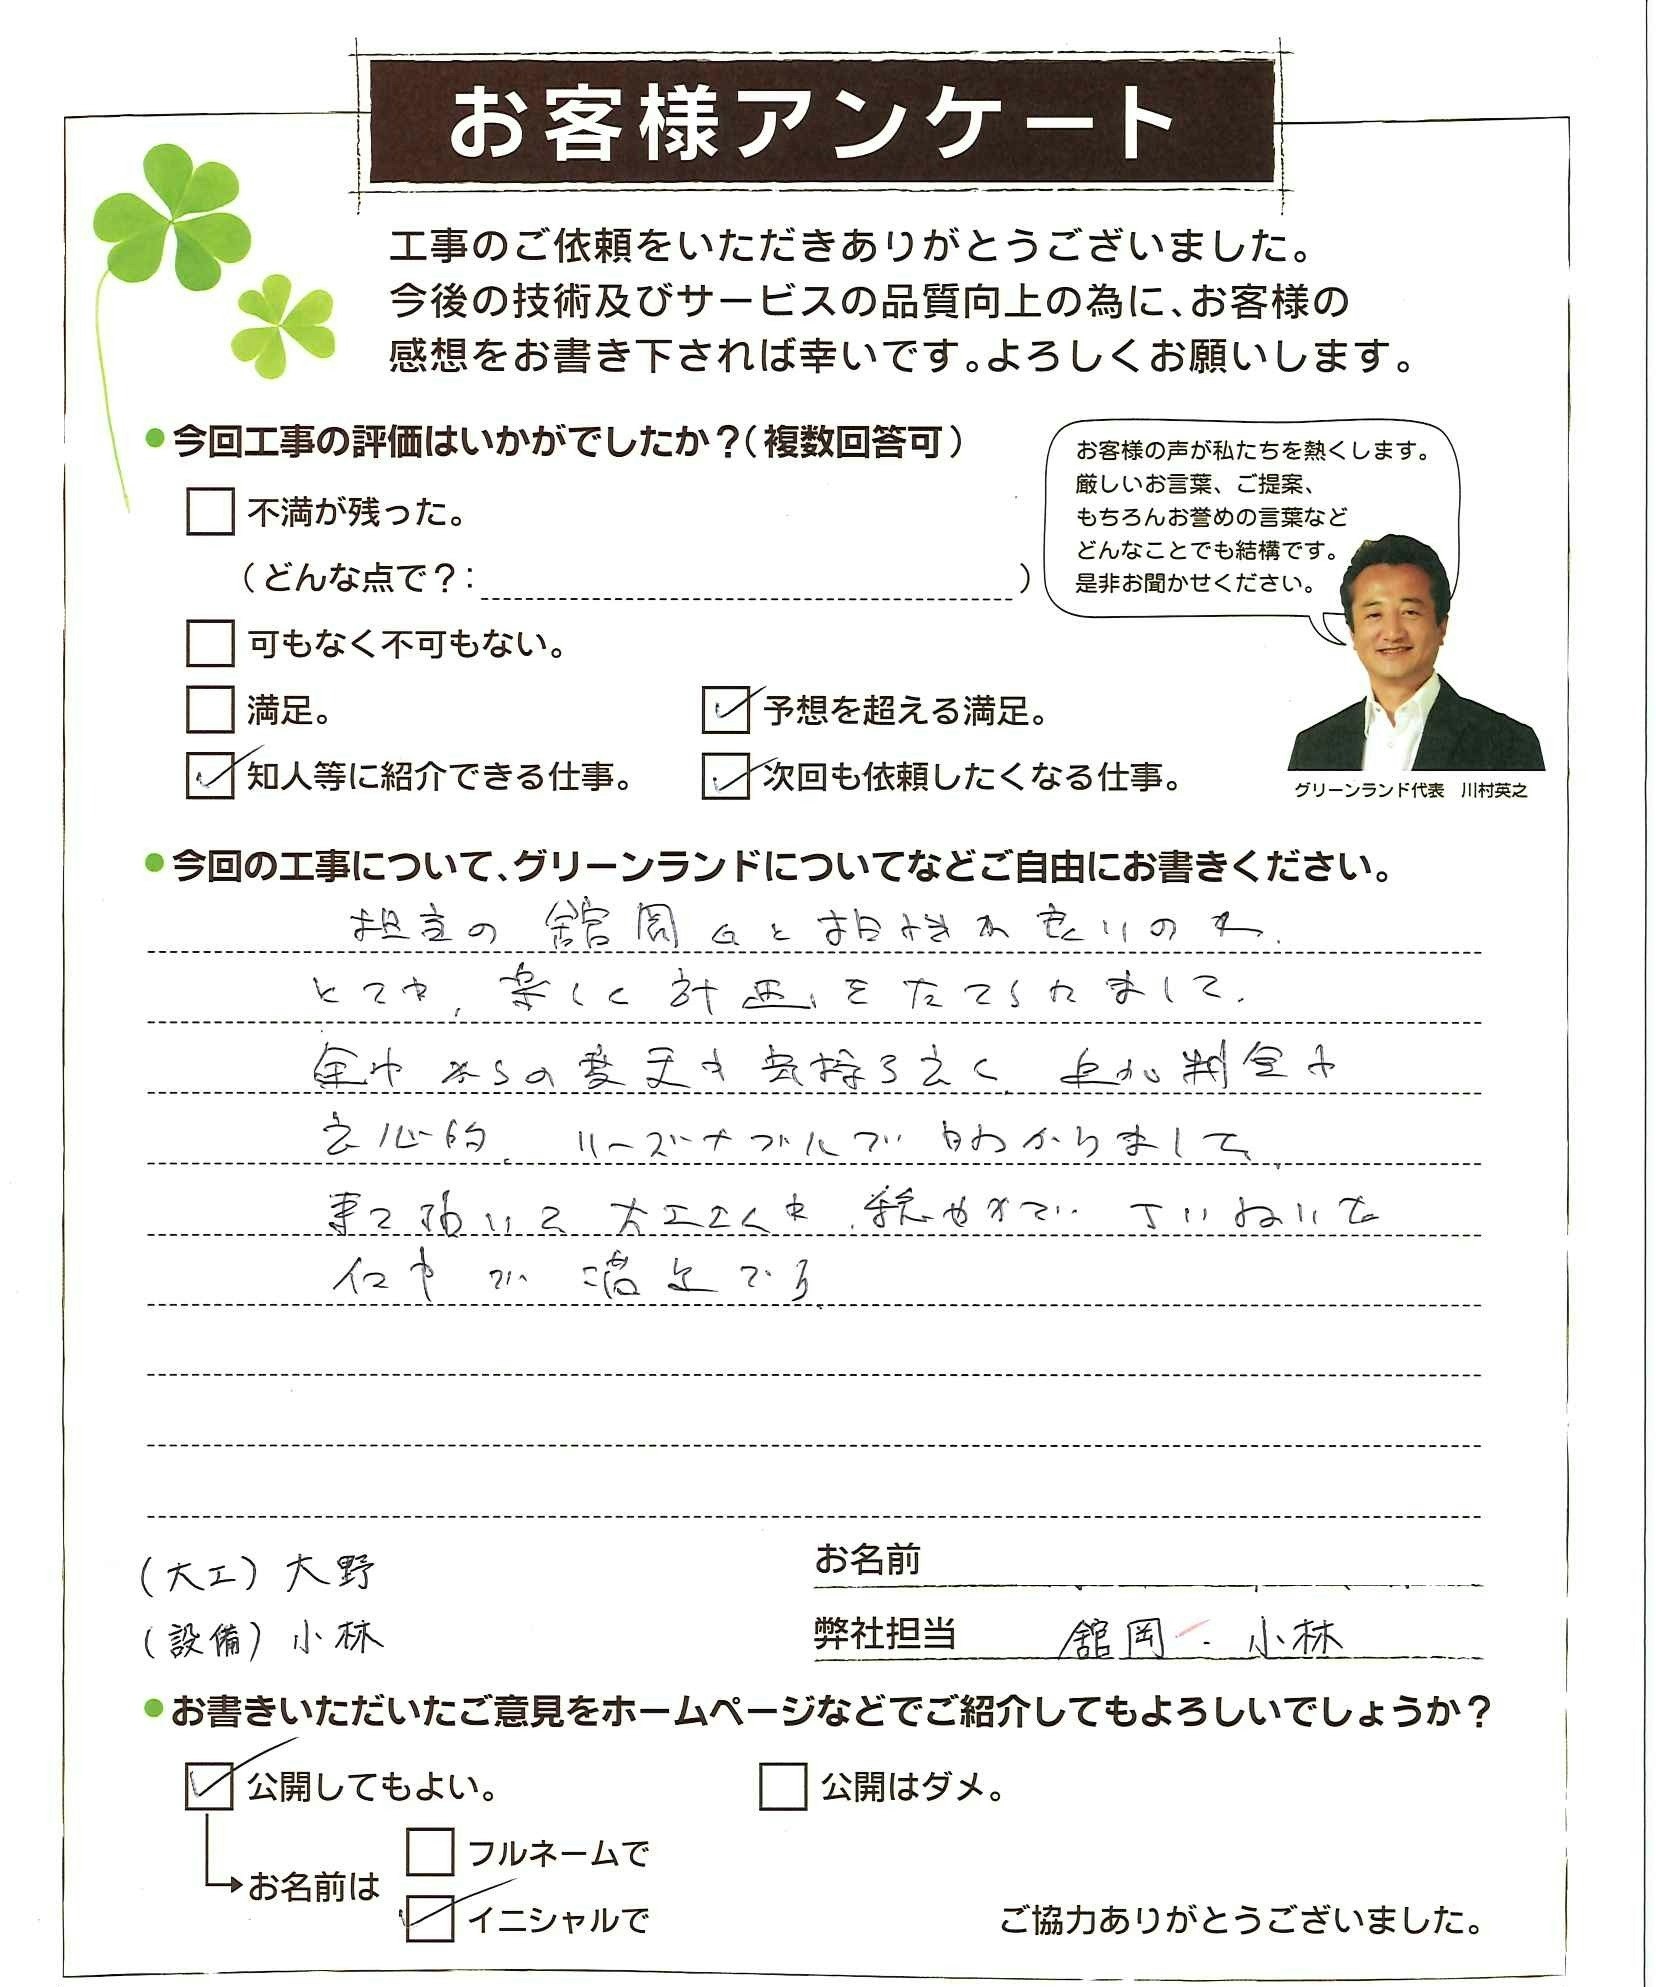 お客様アンケート
工事のご依頼をいただきありがとうございました。
今後の技術及びサービスの品質向上の為に、お客様の
感想をお書き下されば幸いです。よろしくお願いします。
今回工事の評価はいかがでしたか？（複数回答可）
不満が残った。
（どんな点で？：　）
可もなく不可もない。
満足。
予想を超える満足。
知人等に紹介できる仕事。
次回も依頼したくなる仕事。
お客様の声が私たちを熱くします。
厳しいお言葉、ご提案、
もちろんお誉めの言葉など
どんなことでも結構です。
是非お聞かせください。
グリーンランド代表　川村英之
今回の工事について、グリーンランドについてなどご自由にお書きください。
担当の 舘岡さんと相性が良いのか、
とても、楽しく計画をたてられまして、
からの変更も気持ち良く、
良心的、リーズナブルで 助かりまして、
大工さんも、穏やかで ていねいな
仕事が 満足です
（大工）大野
（設備）小林
お名前
弊社担当　舘岡・小林
お書きいただいたご意見をホームページなどでご紹介してもよろしいでしょうか？
公開してもよい。
公開はダメ。
お名前は
フルネームで
イニシャルで
ご協力ありがとうございました。